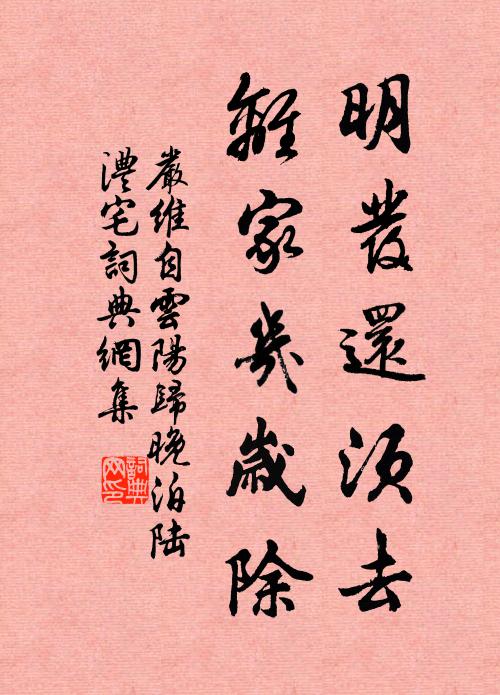 明發還須去
離家幾歲除
嚴維自雲陽歸晚泊陆
澧宅詞典網集
詞典
网印